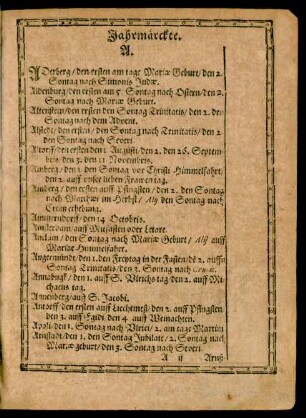 Jahrmärckte.
A.
ADerberg / den ersten am tage Mariæ Geburt / den 2.
Sontag nach Simonis Judæ.
Aldenburg / den ersten am 5. Sontag nach Ostern / den 2.
Sontag nach Mariæ Geburt.
Altenstein / den ersten den Sontag Trinitatis / den 2. den
Sontag nach dem Advent.
Alstedt / den ersten / den Sontag nach Trinitatis / den 2
den Sontag nach
Altorff / den ersten den 1. Augusti / den 2. den 26. Septem-
bris / den 3. den 11 Novembris.
Amberg / den 1 den Sontag vor Christi Himmelfahrt,
den 2. auff unser lieben Frawen tag.
Amberg / den ersten auff Pfingsten / den 2. den Sontag
nach Matthæi im Herbst / Als den Sontag nach
Creutz erhebung.
Ammerndorff / den 14 Octobris.
Amsterdam / auff Mitfasten oder Letare.
Anclam / den Sontag nach Mariæ Geburt / Als auff
Mariæ Himmelfahrt.
Angermünde / den 1. den Freytag in der Fasten / dē 2. auffn
Sontag Trinitatis / den 3. Sontag nach
Annabugk / den 1. auff S. Ulrichs tag / den 2. auff Mi-
chaelis tag.
Annenberg / auff S. Jacobi.
Antorff / den ersten auff Liechtmeß / den 2. auff Pfingsten
den 3. auff Egidi / den 4. auff Weinachten.
den 1. Sontag nach Ulrici / 2. am tage Martini
Arnstadt / den 1. den Sontag Jubilate / 2. Sontag nach
Mariæ geburt / den 3. Sontag nach
A ij